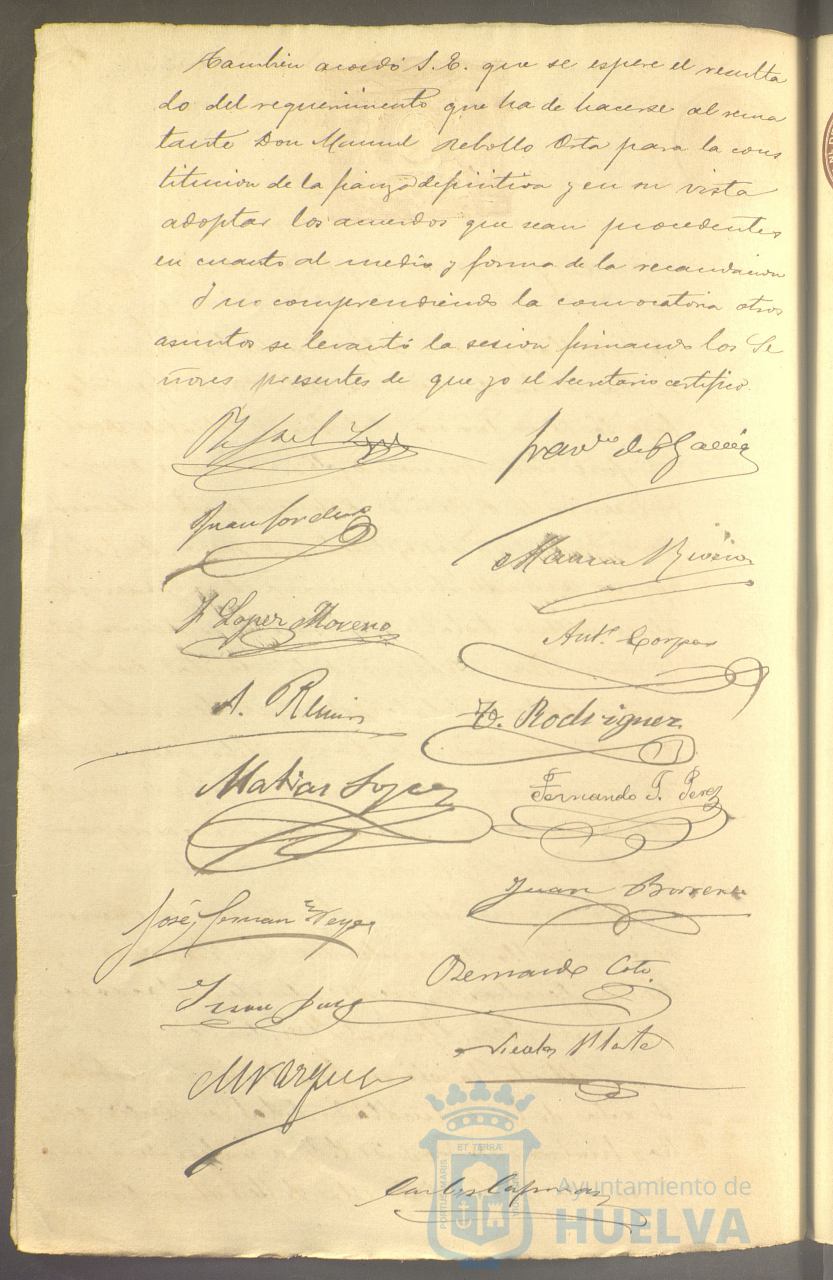 Tambien acordó S.E. que se espere el resulta
do del requerimiento que ha de hacerse al rema
tante Don Manuel Rebollo Orta para la cons
titucion de la fianza definitiva y en su vista
adoptar los acuerdos que sean procedentes
en cuanto al medio y forma de la recaudacion
Y no comprendiendo la convocatoria otros
asuntos se levantó la sesion firmando los Se
ñores presentes de que yo el Secretario certifico.
Rafael
Franco de P García
Juan
Manuel
López Moreno
Anto. Corpas
A.
Rodriguez
Matias Lopez
Fernando T. Perez
Juan Borrero
José
Bernardo Coto.
Juan
Nicolas
M Vazquez
ET TERRÆ
PORTUS MARIS
CUSTODIA
Carlos
Ayuntamiento de
HUELVA